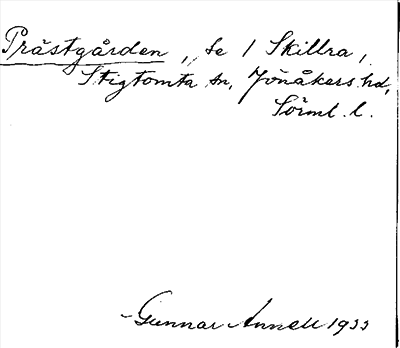 Prästgården, se 1 Skillra,
Stigtomta sn, Jönåkers hd,
Sörml. l.
Gunnar Annell 1933